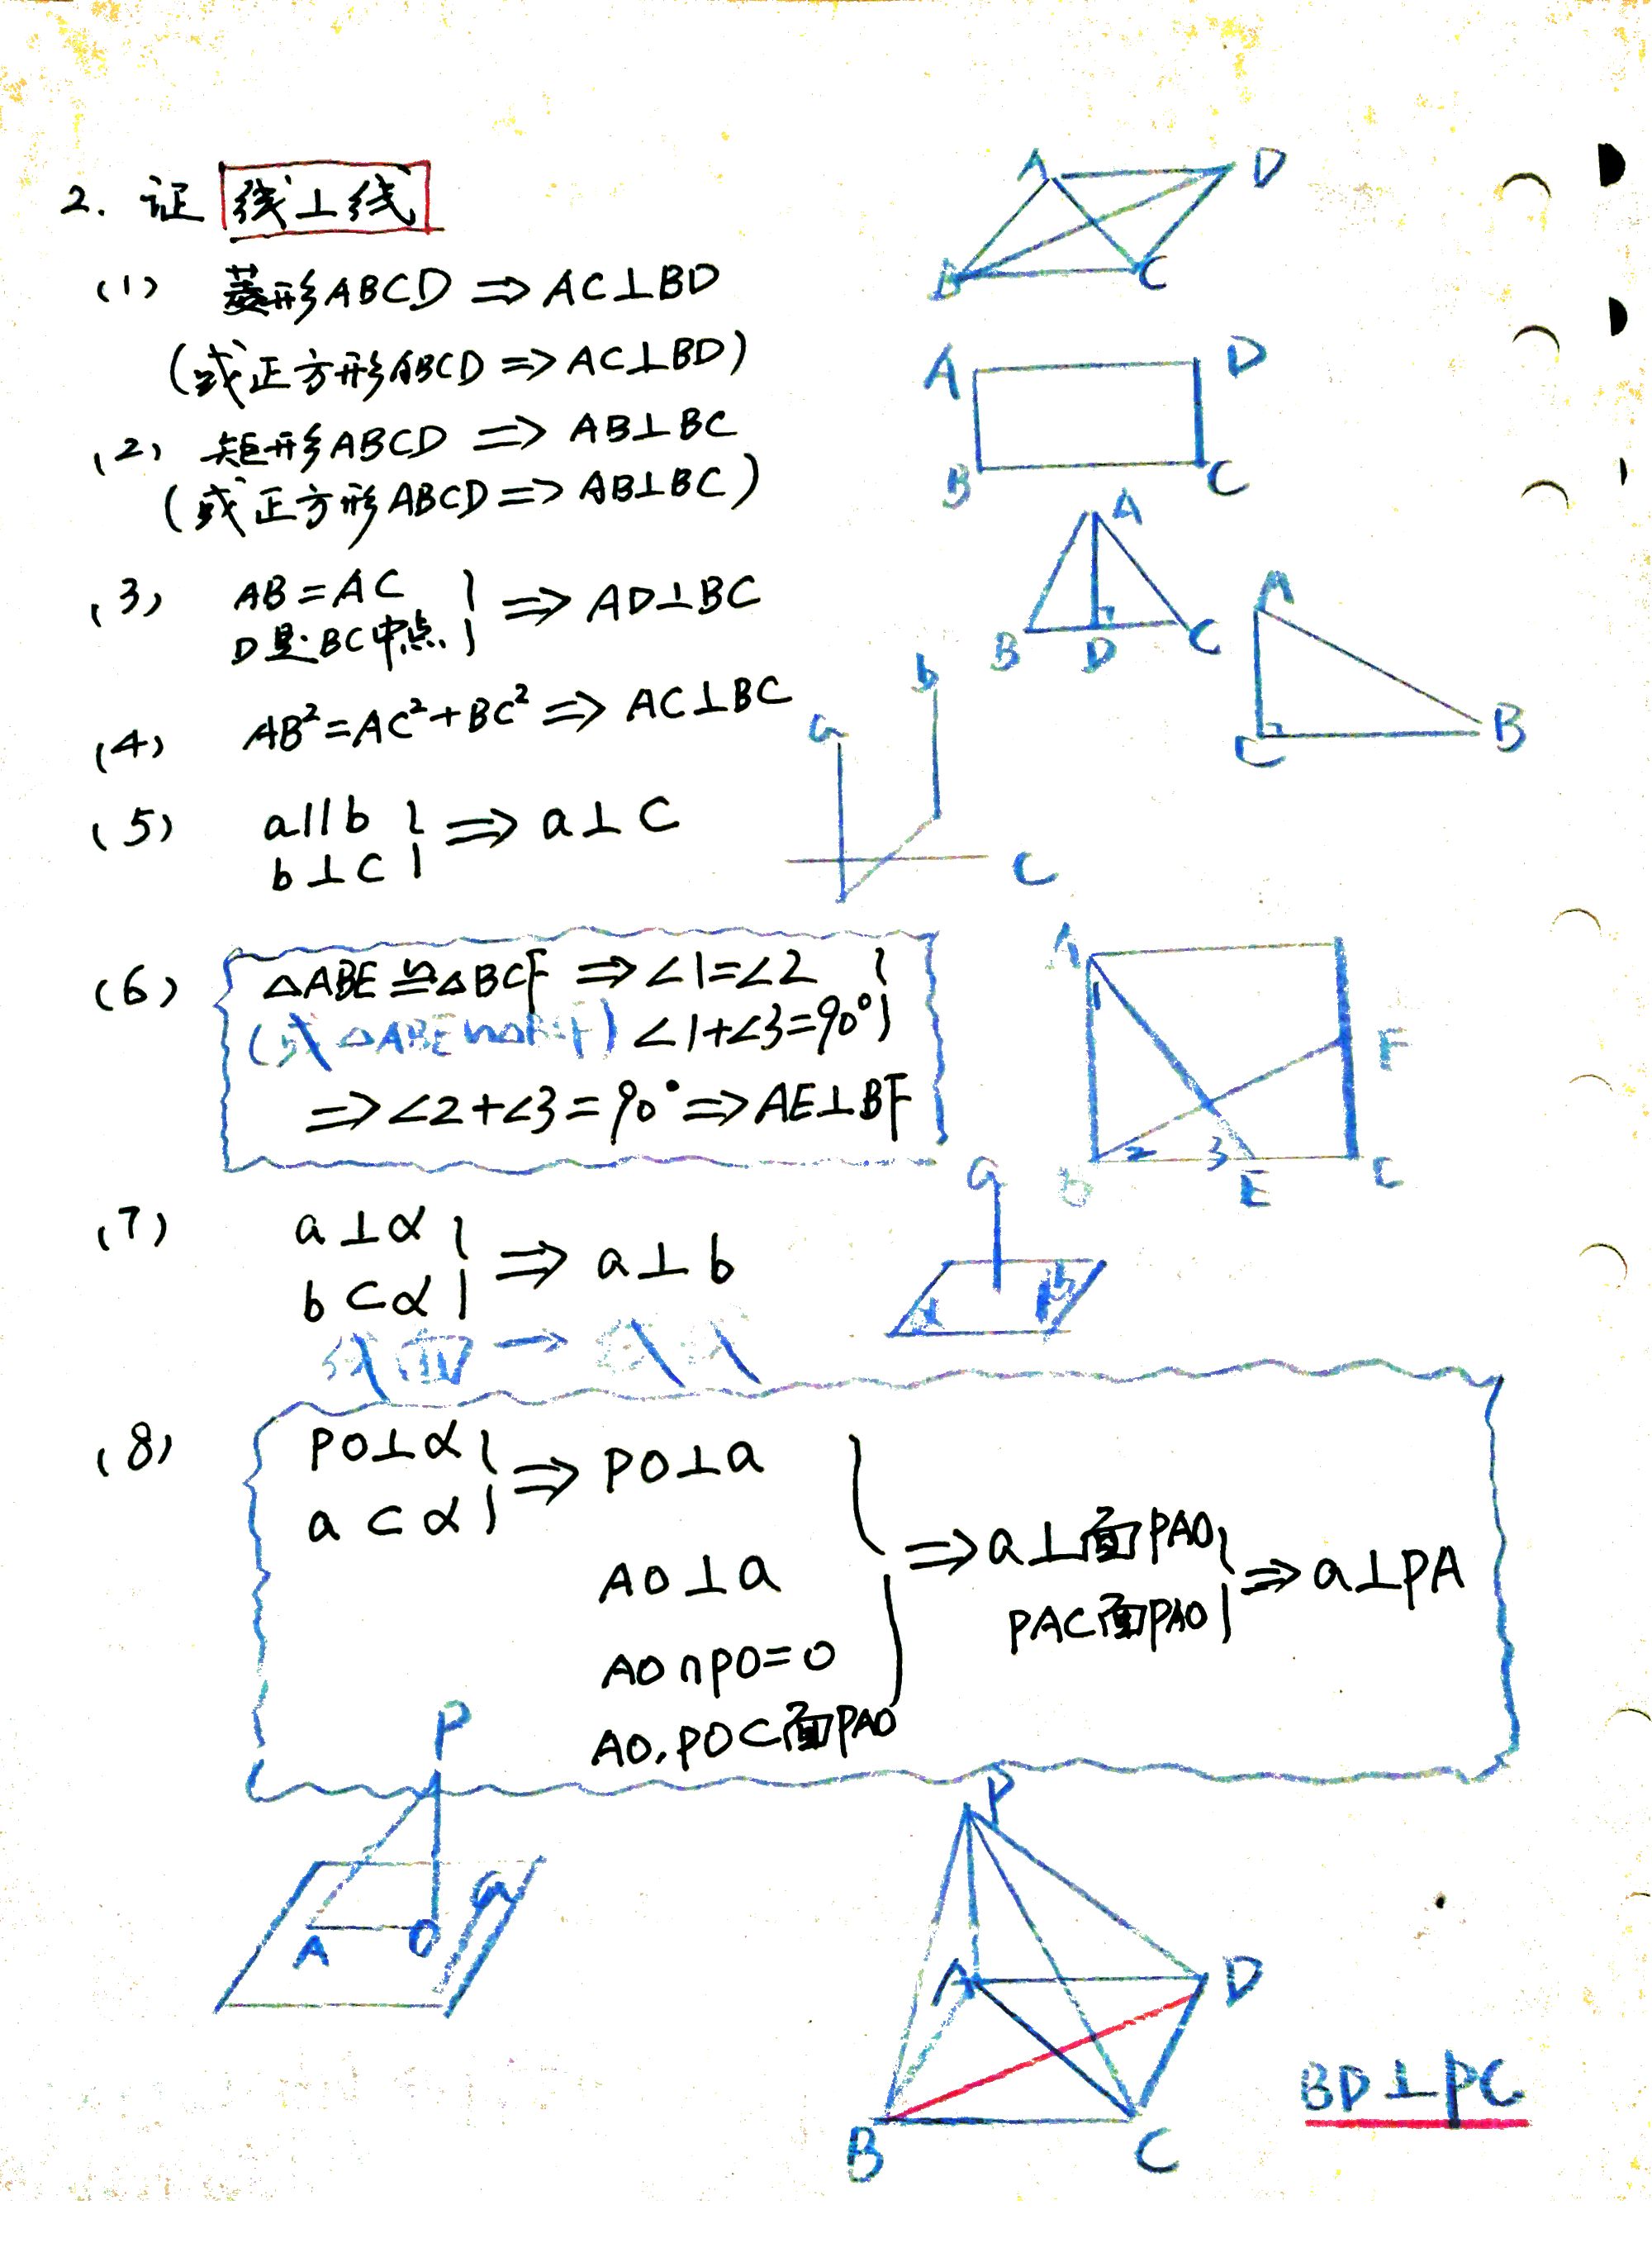 2. 证 线⊥线
(1) 菱形ABCD ⇒ AC⊥BD
(或正方形ABCD ⇒ AC⊥BD)
(2) 矩形ABCD ⇒ AB⊥BC
(或正方形ABCD ⇒ AB⊥BC)
(3) AB=AC
D是BC中点 } ⇒ AD⊥BC
(4) AB²=AC²+BC² ⇒ AC⊥BC
(5) a∥b
b⊥c } ⇒ a⊥c
(6) △ABE≌△BCF ⇒ ∠1=∠2
(或△ABE∽△BCF) ∠1+∠3=90° }
⇒ ∠2+∠3=90° ⇒ AE⊥BF
(7) a⊥α
b⊂α } ⇒ a⊥b
线面 → 线线
(8) PO⊥α
a⊂α } ⇒ PO⊥a
AO⊥a
AO∩PO=O
AO,PO⊂面PAO
} ⇒ a⊥面PAO
PA⊂面PAO } ⇒ a⊥PA
A D
B C
A D
B C
A
B D C
A
C B
a b
c
A
1
F
2 3
B E C
a
α b
P
a
A O
P
A D
B C
BD⊥PC